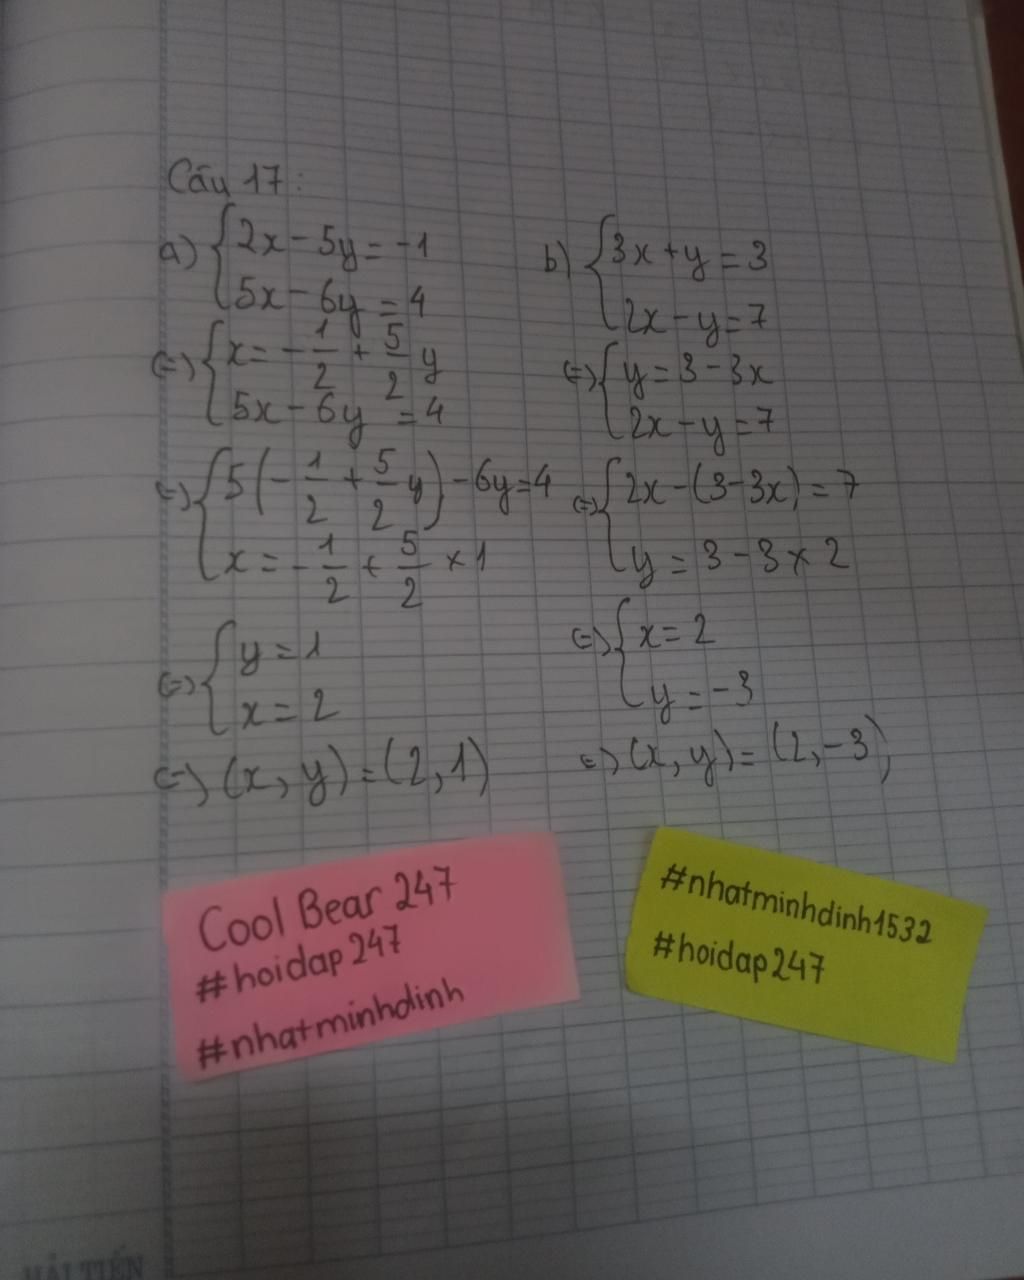 Câu 17:
a) { 2x - 5y = -1
5x - 6y = 4
(=) { x = -1/2 + 5/2 y
5x - 6y = 4
(=) { 5(-1/2 + 5/2 y) - 6y = 4
x = -1/2 + 5/2 × 1
(=) { y = 1
x = 2
(=) (x, y) = (2, 1)
b) { 3x + y = 3
2x - y = 7
(=) { y = 3 - 3x
2x - y = 7
(=) { 2x - (3 - 3x) = 7
y = 3 - 3 × 2
(=) { x = 2
y = -3
(=) (x, y) = (2, -3)
Cool Bear 247
#hoidap247
#nhatminhdinh
#nhatminhdinh1532
#hoidap247
HẢI TIẾN